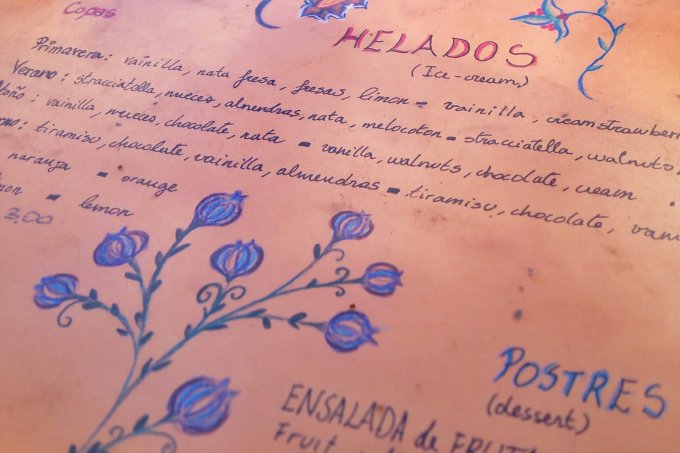 Copas
HELADOS
(Ice-cream)
Primavera: vainilla, nata fresa, fresas, limon = vainilla, cream strawberri
Verano: stracciatella, nueces, almendras, nata, melocoton = stracciatella, walnuts,
toño: vainilla, nueces, chocolate, nata = vanilla, walnuts, chocolate, cream
rno: tiramisu, chocolate, vainilla, almendras = tiramisu, chocolate, vani
naranja = orange
mon = lemon
3,00
POSTRES
(dessert)
ENSALADA de FRUTA
Fruit